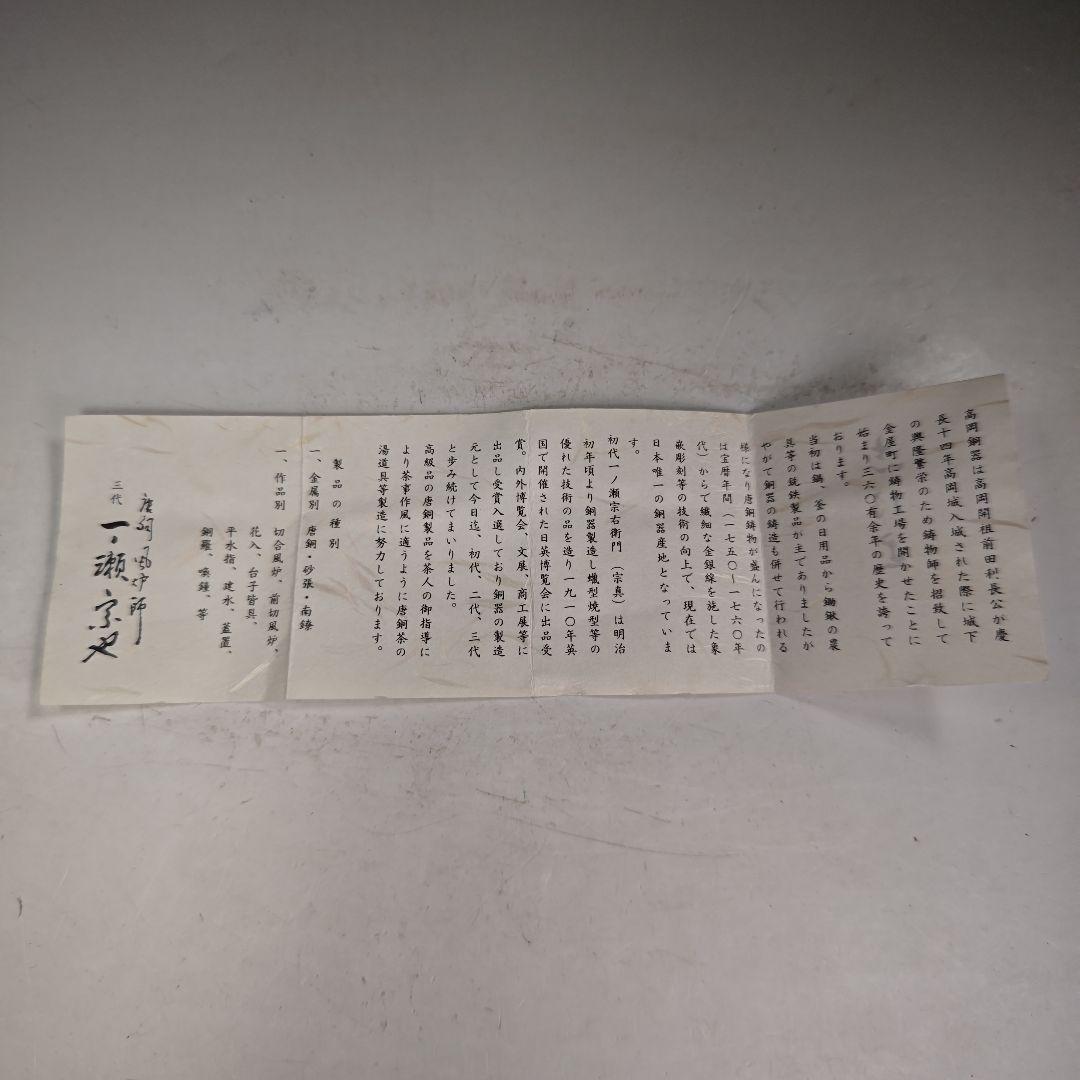 高岡銅器は高岡開祖前田利長公が慶
長十四年高岡城入城された際に城下
の興隆繁栄のため鋳物師を招致して
金屋町に鋳物工場を開かせたことに
始まり三六〇有余年の歴史を誇って
おります。
当初は鍋、釜の日用品から鋤鍬の農
具等の銑鉄製品が主でありましたが
やがて銅器の鋳造も併せて行われる
様になり唐銅鋳物が盛んになったの
は宝暦年間（一七五〇～一七六〇年
代）からで繊細な金銀線を施した象
嵌彫刻等の技術の向上で、現在では
日本唯一の銅器産地となっていま
す。
初代一ノ瀬宗右衛門（宗真）は明治
初年頃より銅器製造し蠟型焼型等の
優れた技術の品を造り一九一〇年英
国で開催された日英博覧会に出品受
賞。内外博覧会、文展、商工展等に
出品し受賞入選しており銅器の製造
元として今日迄、初代、二代、三代
と歩み続けてまいりました。
高級品の唐銅製品を茶人の御指導に
より茶事作風に適うように唐銅茶の
湯道具等製造に努力しております。
製品の種別
一、金属別　唐銅・砂張・南鐐
一、作品別　切合風炉、前切風炉、
花入、台子皆具、
平水指、建水、蓋置、
銅羅、喚鐘、等
唐銅風炉師
三代　一ノ瀬宗也